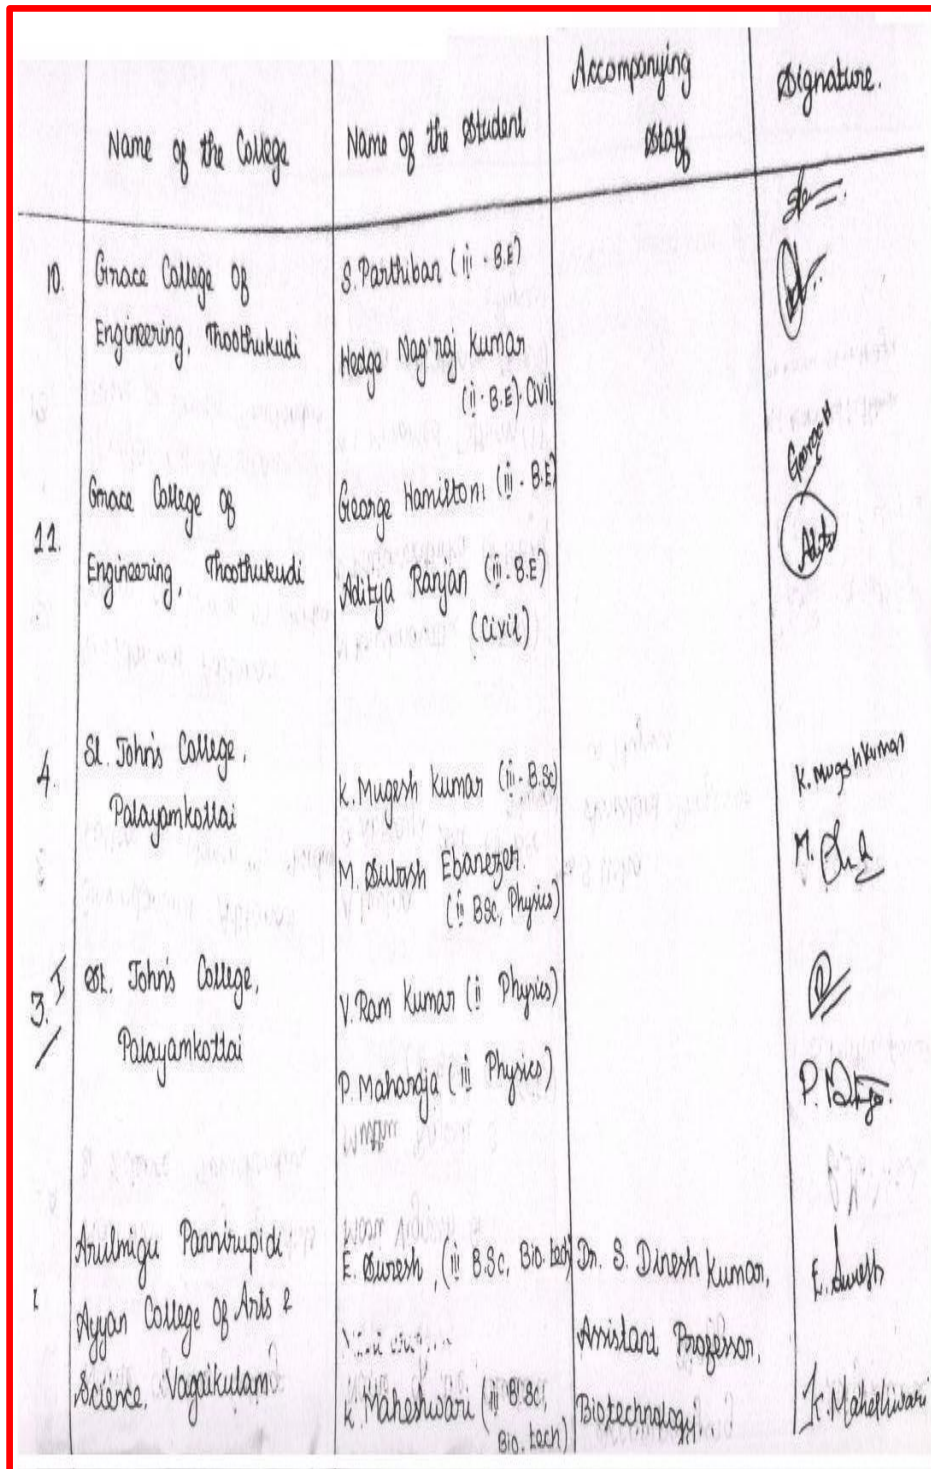 Name of the College
Name of the Student
Accompanying
Staff
Signature.
10.
Grace College of
Engineering, Thoothukudi
S. Parthiban (iii - B.E)
Nag raj Kumar
(ii - B.E) Civil
11.
Grace College of
Engineering, Thoothukudi
George Hamilton (iii - B.E)
Aditya Ranjan (iii - B.E)
(Civil)
George H
4.
St. John's College,
Palayamkottai
K. Mugesh Kumar (iii - B.Sc)
M. Subash Ebanezer.
(ii BSc, Physics)
K. Mugesh Kumar
M.
3. I
St. John's College,
Palayamkottai
V. Ram Kumar (ii Physics)
P. Maharaja (iii Physics)
P.
Arulmigu Pannirupidi
Ayyan College of Arts &
Science, Vagaikulam
E. Suresh, (iii B.Sc, Bio. tech)
K. Maheshwari (iii B.Sc,
Bio. tech)
Dr. S. Dinesh Kumar,
Assistant Professor,
Biotechnology.
E. Suresh
K. Maheshwari